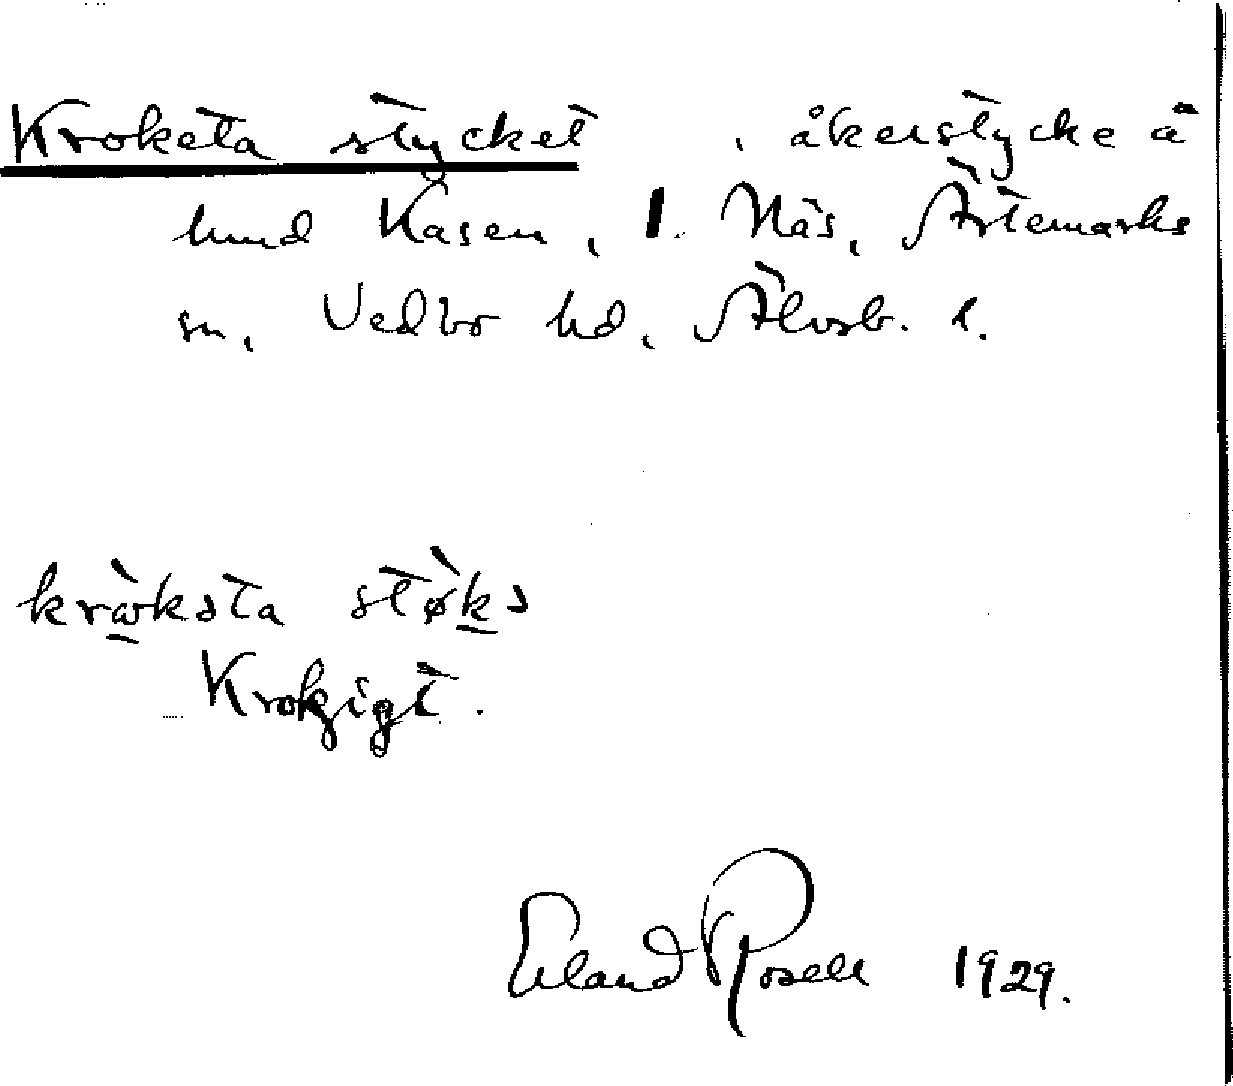 Kroketa stycket, åkerstycke å
lund Kasen, 1. Näs, Ärtemarks
sn, Vedbo hd, Älvsb. l.
krœ̀kəta stø̀kə
Krokigt.
Erland Rosell 1929.